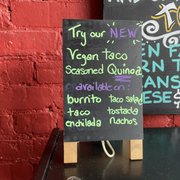 Try our NEW
Vegan Taco
Seasoned Quinoa
available on:
burrito taco salad
taco tostada
enchilada nachos